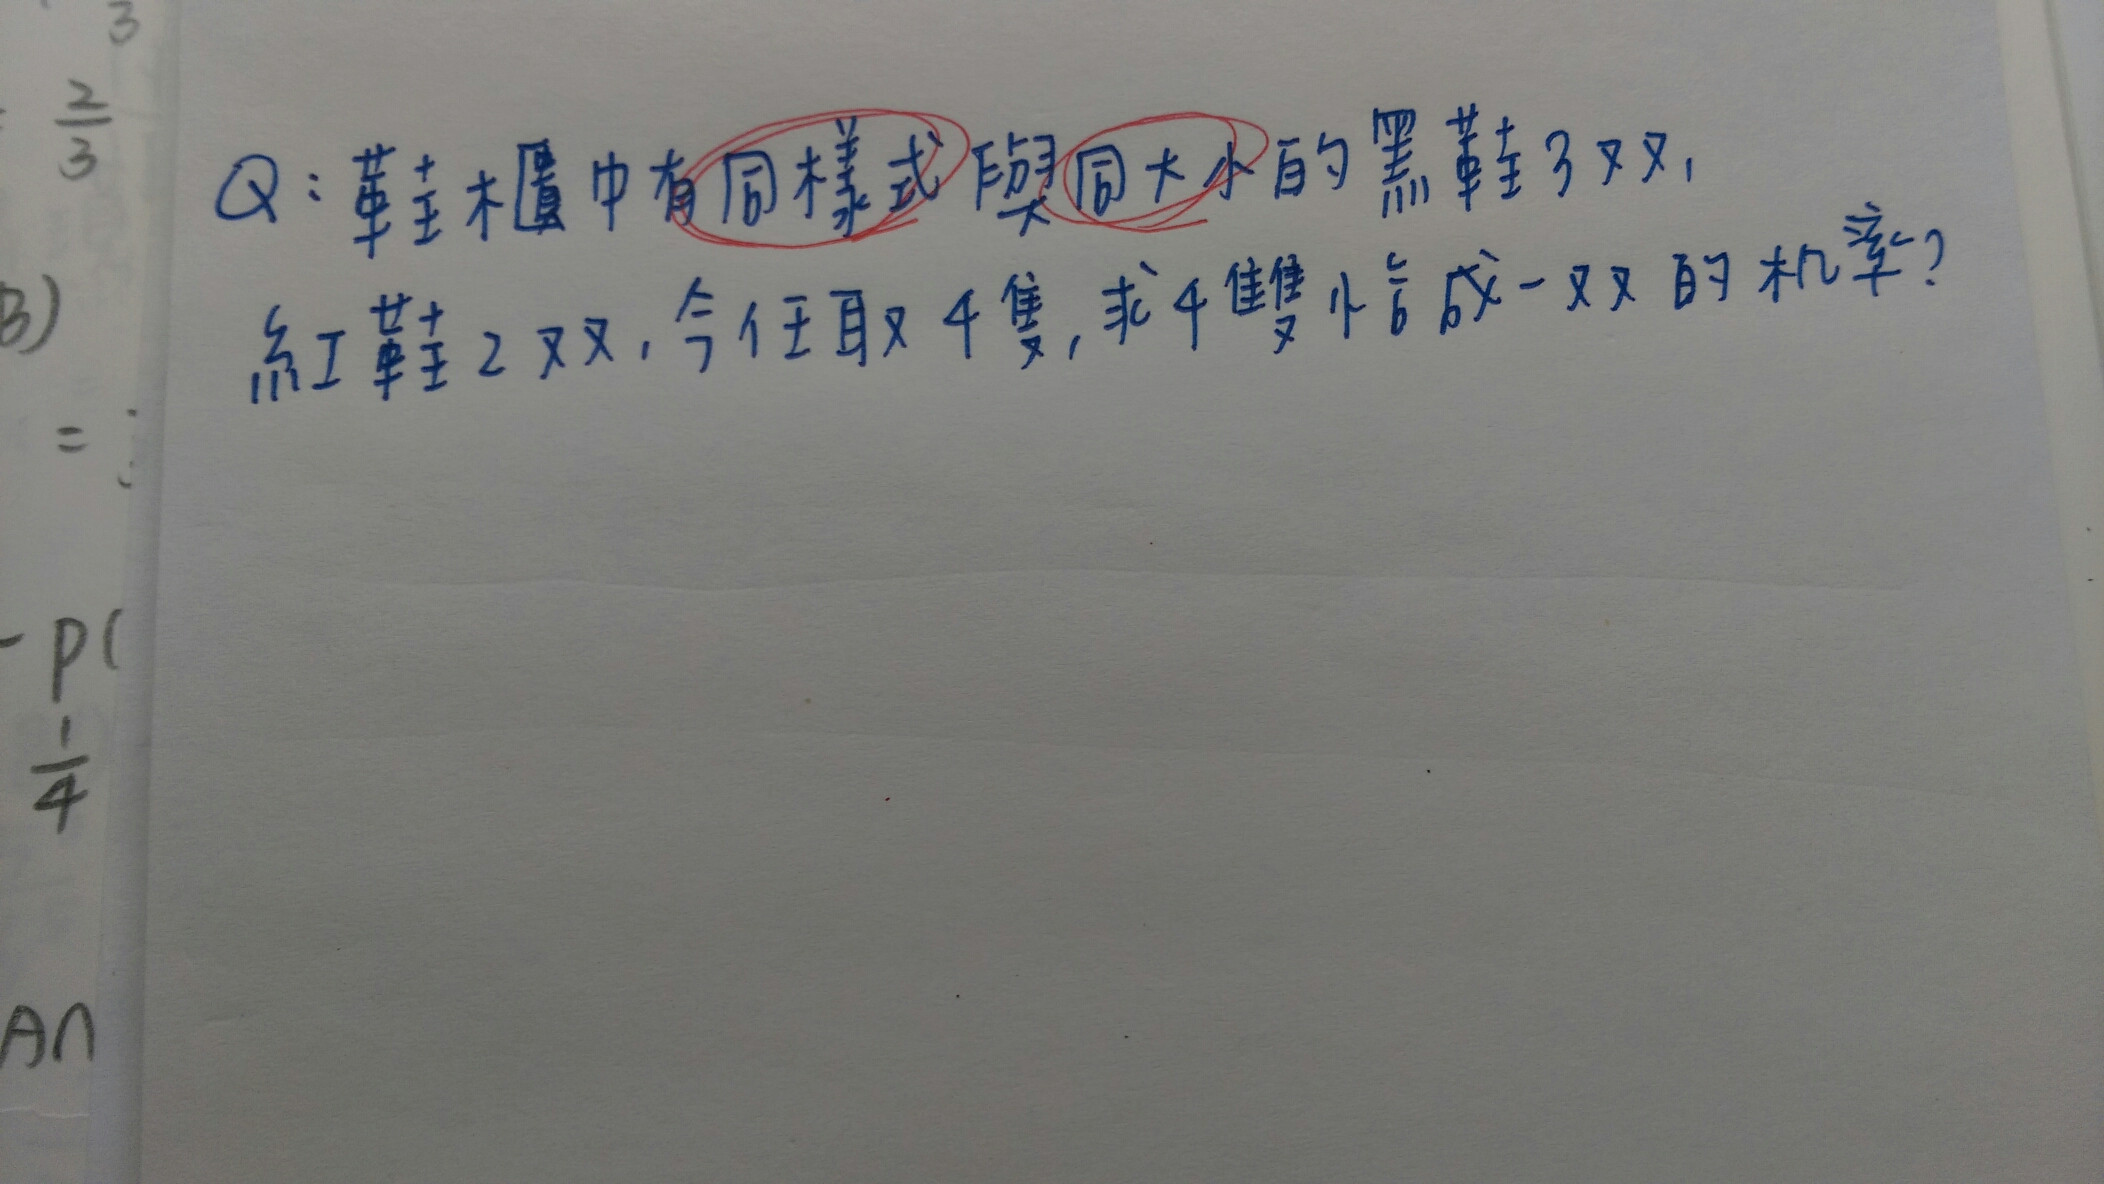 3
2/3
B)
=
- P(
1/4
A∩
Q:鞋櫃中有同樣式與同大小的黑鞋3双,
紅鞋2双,今任取4隻,求4雙恰成一双的机率?